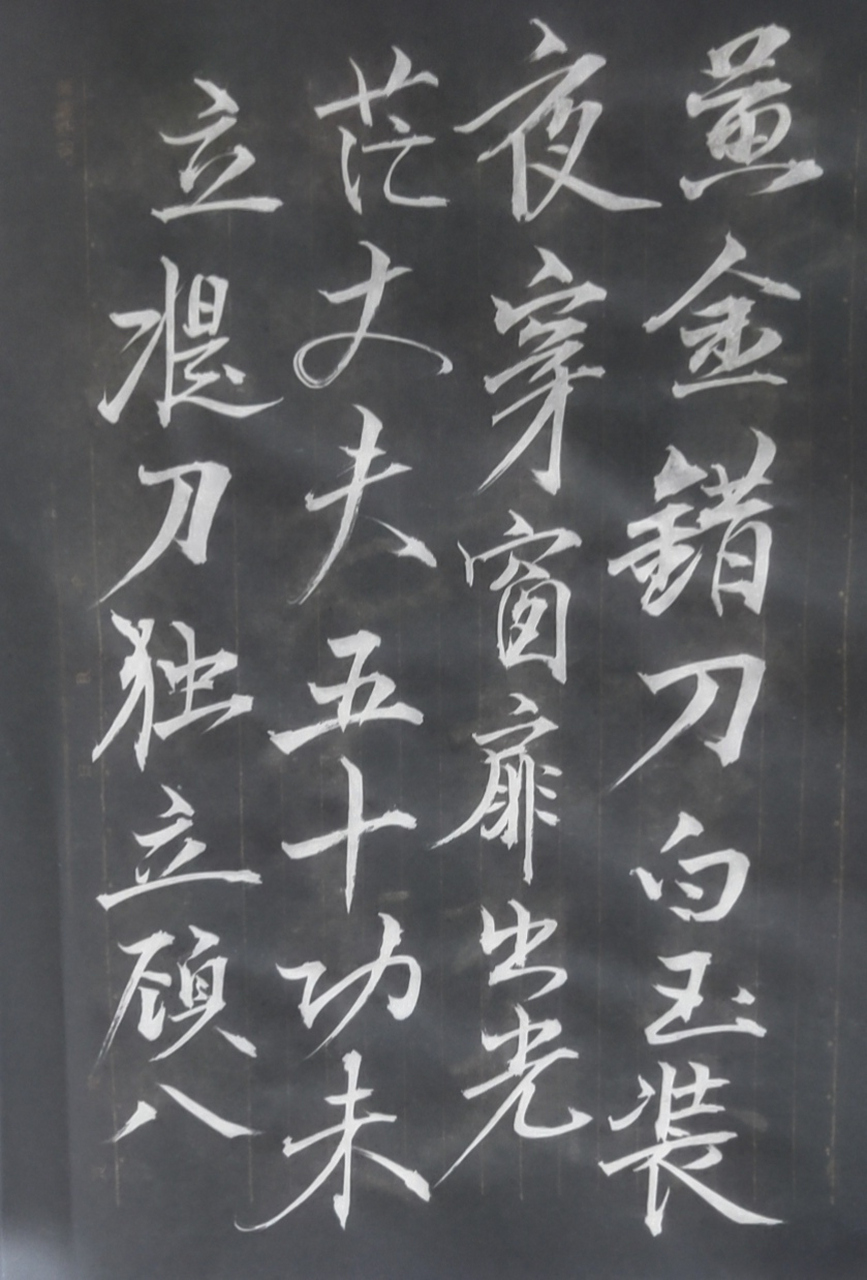 黄金错刀白玉装
夜穿窗扉出光
茫丈夫五十功未
立提刀独立顾八